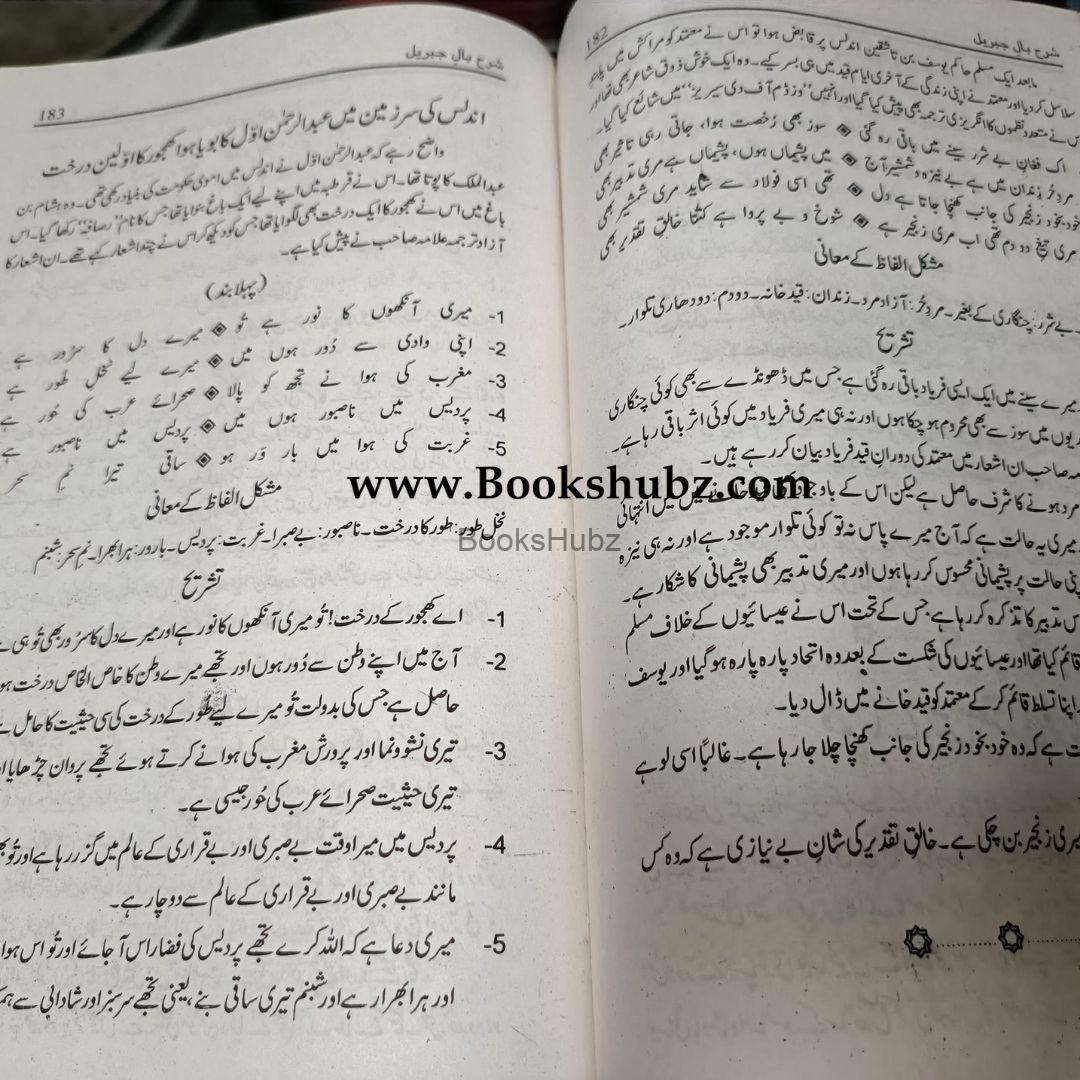 182
شرح بال جبریل
مابعد ایک مسلم حاکم یوسف بن تاشقین اندلس پر قابض ہوا تو اس نے معتمد کو مراکش میں پابند
سلاسل کر دیا اور معتمد نے اپنی زندگی کے آخری ایام قید میں ہی بسر کیے۔ وہ ایک خوش ذوق شاعر بھی تھا اور
س نے متعدد نظموں کا انگریزی ترجمہ بھی پیش کیا گیا اور انہیں "وزڈم آف دی سیریز" میں شائع کیا گیا۔
اک فغانِ بے شرر سینے میں باقی رہ گئی سوز بھی رُخصت ہوا، جاتی رہی تاثیر بھی
مردِ حُر زنداں میں ہے بے نیزہ و شمشیر آج میں پشیماں ہوں، پشیماں ہے مری تدبیر بھی
خودبخود زنجیر کی جانب کھنچا جاتا ہے دل تھی اسی فولاد سے شاید مری شمشیر بھی
مری تیغِ دو دم تھی اب مری زنجیر ہے شوخ و بے پروا ہے کتنا خالقِ تقدیر بھی
مشکل الفاظ کے معانی
بے شرر: چنگاری کے بغیر۔ مردِ حُر: آزاد مرد۔ زنداں: قید خانہ۔ دو دم: دو دھاری تلوار۔
تشریح
میرے سینے میں ایک ایسی فریاد باقی رہ گئی ہے جس میں ڈھونڈے سے بھی کوئی چنگاری
سوز سے بھی محروم ہو چکا ہوں اور نہ ہی میری فریاد میں کوئی اثر باقی رہا ہے۔
مہ صاحب ان اشعار میں معتمد کی دورانِ قید فریاد بیان کر رہے ہیں۔
مرد ہونے کا شرف حاصل ہے لیکن اس کے باوجود میں انتہائی
میری یہ حالت ہے کہ آج میرے پاس نہ تو کوئی تلوار موجود ہے اور نہ ہی نیزہ
پنی حالت پر پشیمانی محسوس کر رہا ہوں اور میری تدبیر بھی پشیمانی کا شکار ہے۔
س تدبیر کا تذکرہ کر رہا ہے، جس کے تحت اس نے عیسائیوں کے خلاف مسلم
قائم کیا تھا اور عیسائیوں کی شکست کے بعد وہ اتحاد پارہ پارہ ہو گیا اور یوسف
اپنا تسلط قائم کر کے معتمد کو قید خانے میں ڈال دیا۔
ت ہے کہ وہ خودبخود زنجیر کی جانب کھنچا چلا جا رہا ہے۔ غالباً اسی لوہے
میری زنجیر بن چکی ہے۔ خالقِ تقدیر کی شانِ بے نیازی ہے کہ وہ کس
شرح بال جبریل
183
اندلس کی سرزمین میں عبدالرحمٰن اوّل کا بویا ہوا کھجور کا اوّلین درخت
واضح رہے کہ عبدالرحمٰن اوّل نے اندلس میں اموی حکومت کی بنیاد رکھی تھی۔ وہ ہشام بن
عبدالملک کا پوتا تھا۔ اس نے قرطبہ میں اپنے لیے ایک باغ بنوایا تھا جس کا نام "رصافہ" رکھا گیا۔ اس
باغ میں اس نے کھجور کا ایک درخت بھی لگوایا تھا جس کو دیکھ کر اس نے چند اشعار کہے تھے۔ ان اشعار کا
آزاد ترجمہ علامہ صاحب نے پیش کیا ہے۔
(پہلا بند)
1- میری آنکھوں کا نور ہے تُو میرے دل کا سرُور ہے
2- اپنی وادی سے دُور ہوں میں میرے لیے نخلِ طور ہے
3- مغرب کی ہوا نے تجھ کو پالا صحرائے عرب کی حُور ہے
4- پردیس میں ناصبور ہوں میں پردیس میں ناصبور ہے
5- غربت کی ہوا میں بار وَر ہو ساقی تیرا نمِ سحر
مشکل الفاظ کے معانی
نخلِ طور: طور کا درخت۔ ناصبور: بے صبرا۔ غربت: پردیس۔ بارور: ہرا بھرا۔ نمِ سحر: شبنم
تشریح
1- اے کھجور کے درخت! تُو میری آنکھوں کا نور ہے اور میرے دل کا سرُور بھی تُو ہی ہے
2- آج میں اپنے وطن سے دُور ہوں اور تجھے میرے وطن کا خاص الخاص درخت ہو
حاصل ہے جس کی بدولت تُو میرے لیے طُور کے درخت کی سی حیثیت کا حامل ہے
3- تیری نشوونما اور پرورش مغرب کی ہوا نے کرتے ہوئے تجھے پروان چڑھایا او
تیری حیثیت صحرائے عرب کی حُور جیسی ہے۔
4- پردیس میں میرا وقت بے صبری اور بے قراری کے عالم میں گزر رہا ہے اور تُو بھ
مانند بے صبری اور بے قراری کے عالم سے دوچار ہے۔
5- میری دعا ہے کہ اللہ کرے تجھے پردیس کی فضا راس آ جائے اور تُو اس ہوا
اور ہرا بھرا رہے اور شبنم تیری ساقی بنے، یعنی تجھے سرسبز اور شادابی سے ہم
www.Bookshubz.com
BooksHubz